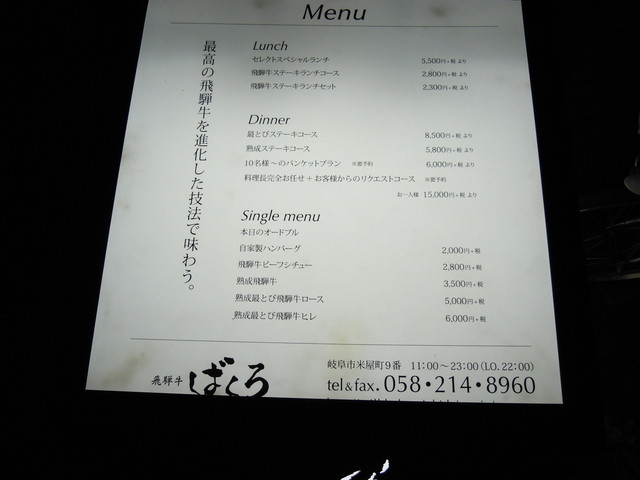 Menu
最高の飛騨牛を進化した技法で味わう。
Lunch
セレクトスペシャルランチ 5,500円+税 より
飛騨牛ステーキランチコース 2,800円+税 より
飛騨牛ステーキランチセット 2,300円+税 より
Dinner
最とびステーキコース 8,500円+税 より
熟成ステーキコース 5,800円+税 より
10名様～のバンケットプラン ※要予約 6,000円+税 より
料理長完全お任せ+お客様からのリクエストコース ※要予約
お一人様 15,000円+税 より
Single menu
本日のオードブル
自家製ハンバーグ 2,000円+税
飛騨牛ビーフシチュー 2,800円+税
熟成飛騨牛 3,500円+税
熟成最とび飛騨牛ロース 5,000円+税
熟成最とび飛騨牛ヒレ 6,000円+税
飛騨牛 ばくろ
岐阜市米屋町9番 11:00～23:00(LO.22:00)
tel&fax. 058・214・8960